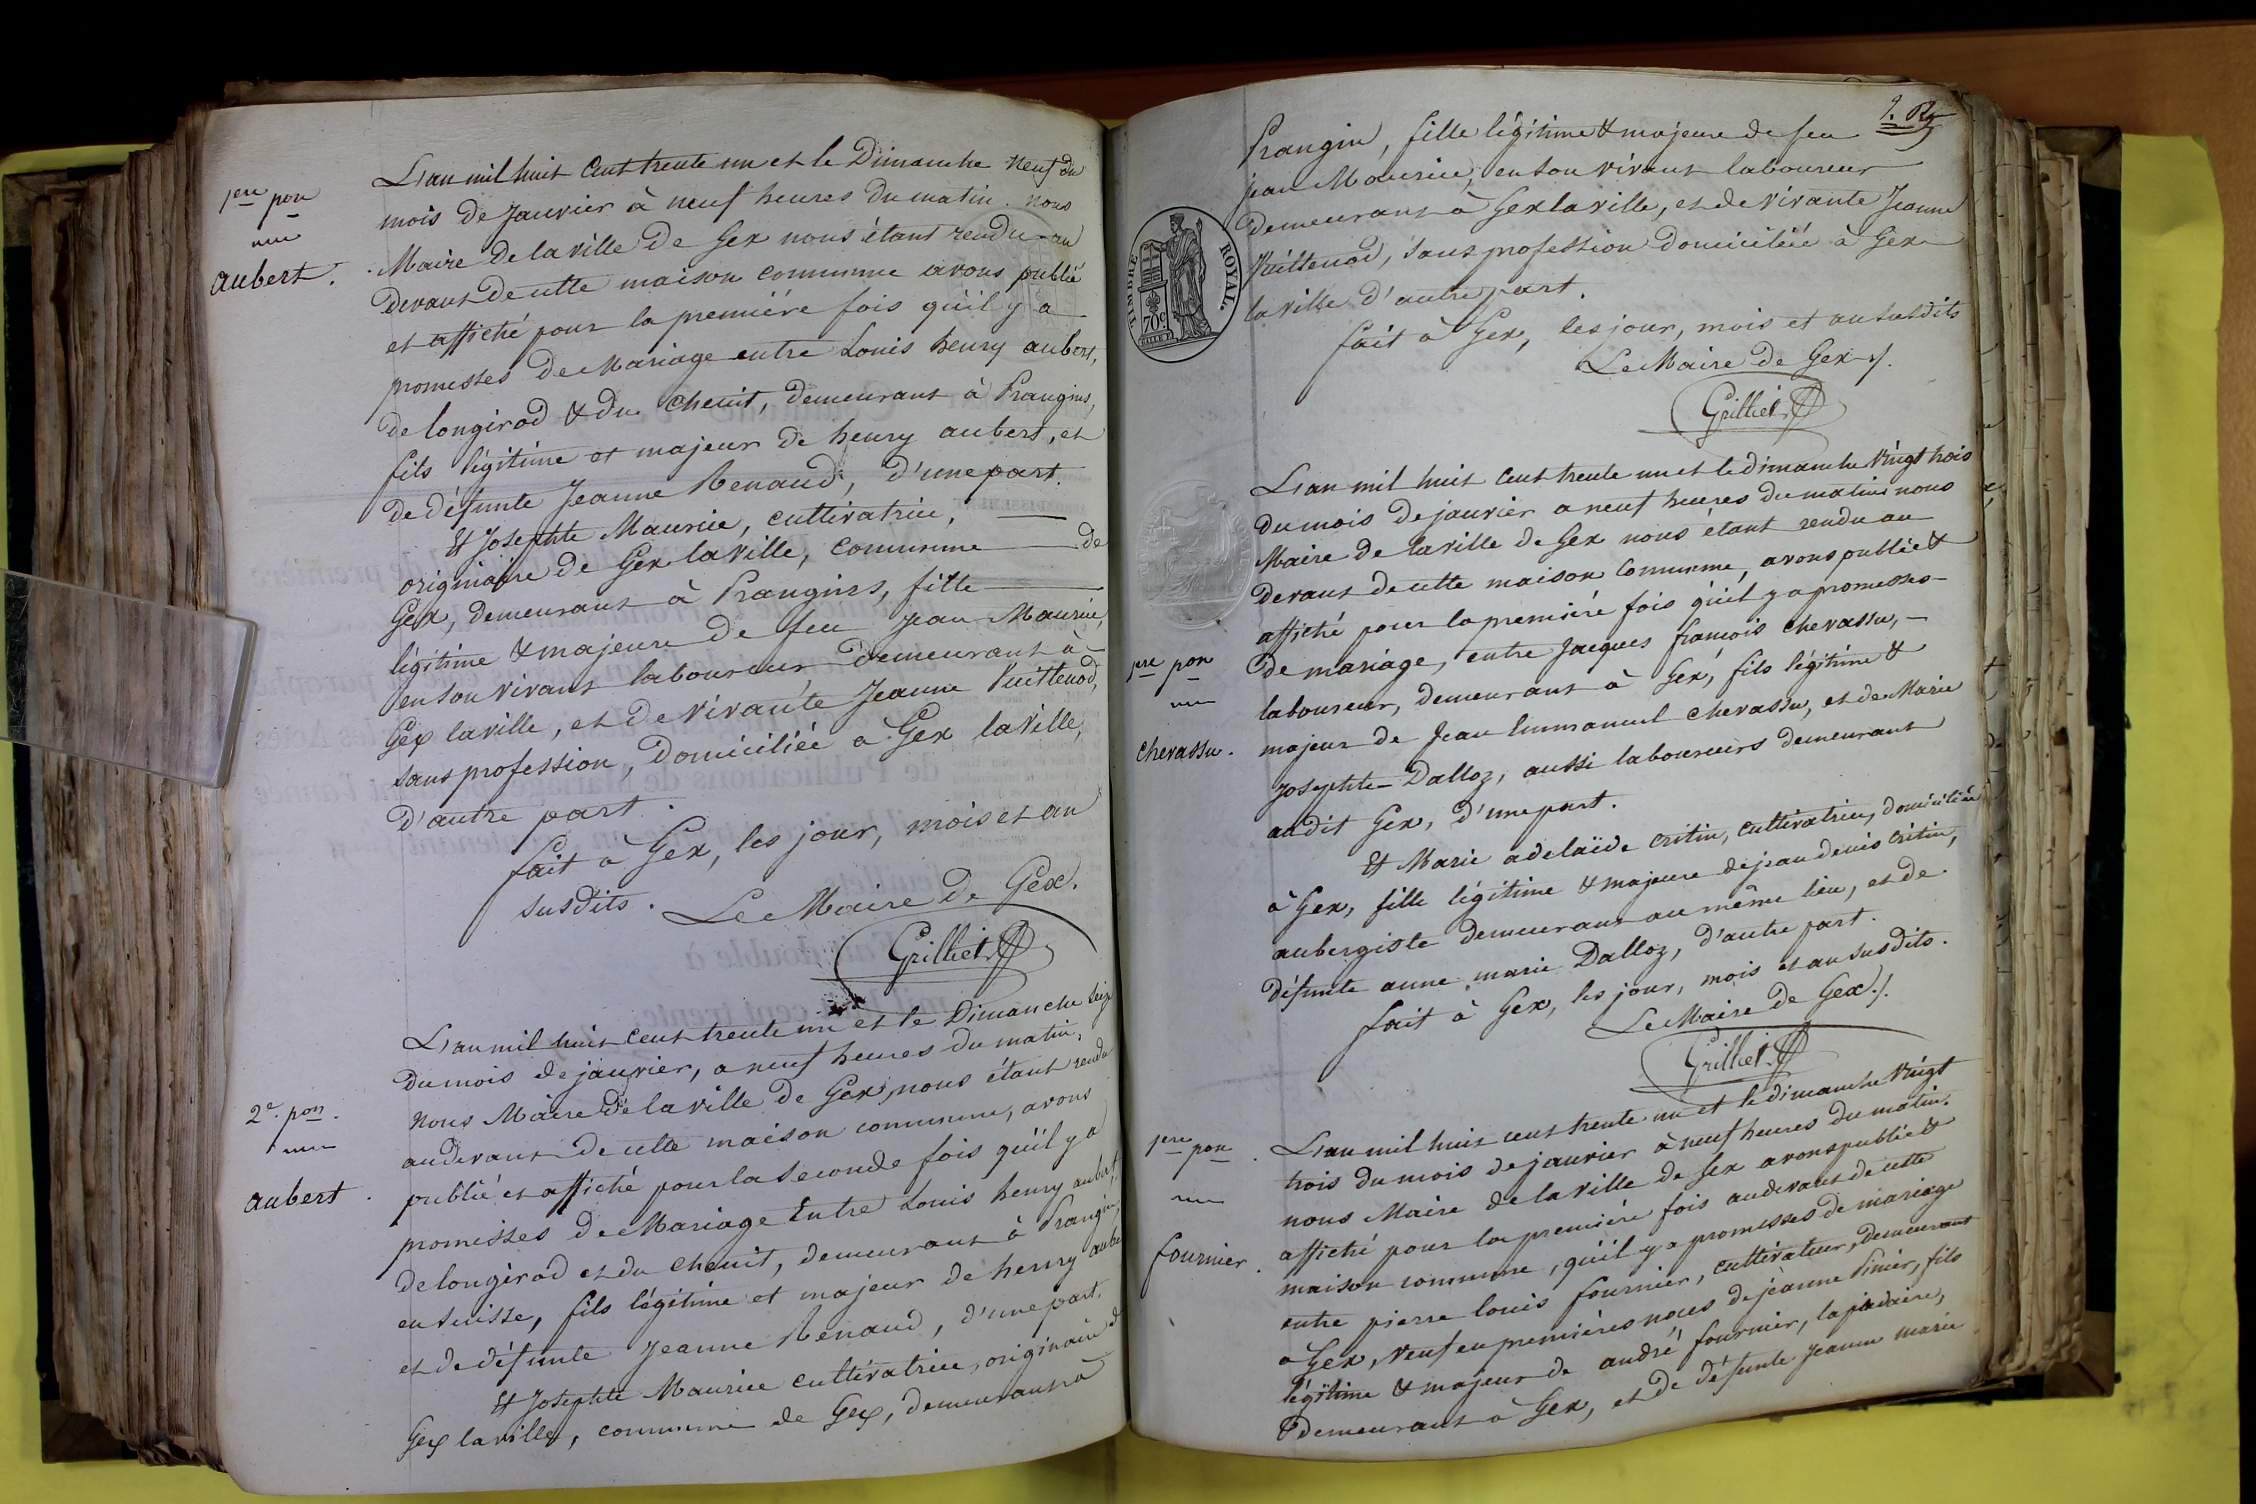 1ere pon
aubert.
L'an mil huit Cent trente un et le Dimanche neuf du
mois de Janvier à neuf heures du matin. nous
Maire de la ville de Gex nous étant rendu au
devant de cette maison commune avons publié
et affiché pour la première fois qu'il y a
promesses de Mariage entre Louis henry aubert,
de longirod & du chenit, demeurant à Prangins,
fils légitime et majeur de henry aubert, et
de défunte Jeanne Renaud, d'une part.
Et Josephte Maurice, cultivatrice,
originaire de Gex la ville, commune de
Gex, demeurant à Prangins, fille
légitime & majeure de feu Jean Maurice,
en son vivant laboureur demeurant à
Gex la ville, et de vivante Jeanne Vuittenod,
sans profession, Domiciliée à Gex la ville,
d'autre part.
fait à Gex, les jour, mois et an
susdits. Le Maire de Gex.
Grilliet
2e. pon.
aubert.
L'an mil huit cent trente un et le Dimanche seize
du mois de janvier, a neuf heures du matin,
nous Maire de la ville de Gex, nous étant rendu
au devant de cette maison commune, avons
publié et affiché pour la seconde fois qu'il y a
promesses de Mariage Entre Louis henry aubert,
de longirod et du chenit, demeurant à Prangin,
en suisse, fils légitime et majeur de henry aube
et de défunte Jeanne Renaud, d'une part.
Et Josephte Maurice cultivatrice, originaire de
Gex la ville, commune de Gex, demeurant à
Prangin, fille légitime & majeure de feu
jean Maurice, en son vivant laboureur
demeurant à Gex la ville, et de vivante Jeanne
Vuittenod, sans profession domiciliée à Gex
la ville d'autre part.
fait à Gex, les jour, mois et an susdits
Le Maire de Gex ./.
Grilliet
TIMBRE ROYAL.
70c.
1ere pon
chevassu.
L'an mil huit Cent trente un et le dimanche vingt trois
du mois de janvier a neuf heures du matin nous
Maire de la ville de Gex nous étant rendu au
devant de cette maison Commune, avons publié &
affiché pour la première fois qu'il y a promesses
de mariage, entre Jacques françois chevassu,
laboureur, demeurant à Gex, fils légitime &
majeur de Jean Emmanuel chevassu, et de Marie
Josephte Dalloz, aussi laboureurs demeurant
audit Gex, d'une part.
Et Marie adelaïde critin, cultivatrice, domiciliée
à Gex, fille légitime & majeure de jean denis critin,
aubergiste demeurant au même lieu, et de
défunte anne marie Dalloz, d'autre part.
fait à Gex, les jour, mois et an susdits.
Le Maire de Gex ./.
Grilliet
1ere pon
fournier.
L'an mil huit cent trente un et le dimanche vingt
trois du mois de janvier à neuf heures du matin,
nous Maire de la ville de Gex avons publié &
affiché pour la première fois au devant de cette
maison commune, qu'il y a promesses de mariage
entre pierre louis fournier, cultivateur, demeurant
à Gex, veuf en premières noces de jeanne Pinier, fils
légitime & majeur de andré fournier, lapidaire,
demeurant à Gex, et de défunte Jeanne marie